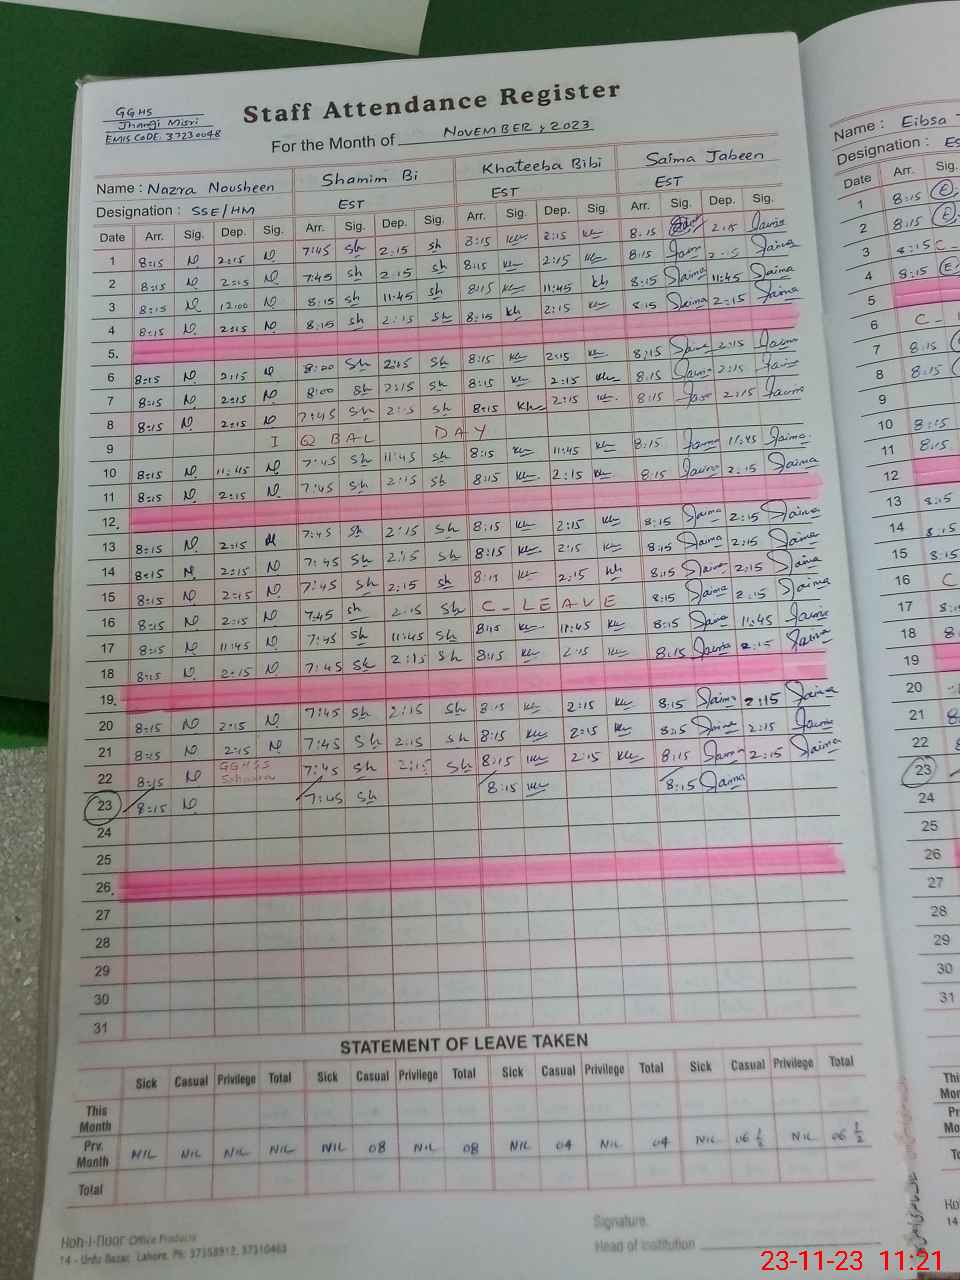 GGHS
Jhangi Misri
EMIS CODE. 37230048
Staff Attendance Register
For the Month of NOVEMBER, 2023
Name : Nazra Nousheen Shamim Bi Khateeba Bibi Saima Jabeen
Designation : SSE/HM EST EST EST
Date Arr. Sig. Dep. Sig. Arr. Sig. Dep. Sig. Arr. Sig. Dep. Sig. Arr. Sig. Dep. Sig.
1 8:15 N 2:15 N 7:45 Sh 2:15 sh 8:15 2:15 8:15 2:15 Saima
2 8:15 N 2:15 N 7:45 sh 2:15 sh 8:15 2:15 8:15 Saima 2:15 Saima
3 8:15 N 12:00 N 8:15 sh 11:45 sh 8:15 11:45 kh 8:15 Saima 11:45 Saima
4 8:15 N 2:15 N 8:15 sh 2:15 sh 8:15 kh 2:15 8:15 Saima 2:15 Saima
5.
6 8:15 N 2:15 N 8:00 Sh 2:15 Sh 8:15 2:15 8:15 Saima 2:15 Saima
7 8:15 N 2:15 N 8:00 Sh 2:15 sh 8:15 2:15 8:15 Saima 2:15 Saima
8 8:15 N 2:15 N 7:45 Sh 2:15 sh 8:15 kh 2:15 8:15 2:15 Saima
9 IQBAL DAY
10 8:15 N 11:45 N 7:45 Sh 11:45 sh 8:15 11:45 8:15 Saima 11:45 Saima
11 8:15 N 2:15 N 7:45 Sh 2:15 sh 8:15 2:15 8:15 Saima 2:15 Saima
12.
13 8:15 N 2:15 N 7:45 sh 2:15 Sh 8:15 2:15 8:15 Saima 2:15 Saima
14 8:15 N 2:15 N 7:45 Sh 2:15 Sh 8:15 2:15 8:15 Saima 2:15 Saima
15 8:15 N 2:15 N 7:45 Sh 2:15 sh 8:15 2:15 8:15 Saima 2:15 Saima
16 8:15 N 2:15 N 7:45 sh 2:15 Sh C-LEAVE 8:15 Saima 2:15 Saima
17 8:15 N 11:45 N 7:45 Sh 11:45 Sh 8:15 11:45 8:15 Saima 11:45 Saima
18 8:15 N 2:15 N 7:45 Sh 2:15 Sh 8:15 2:15 8:15 Saima 2:15 Saima
19.
20 8:15 N 2:15 N 7:45 Sh 2:15 Sh 8:15 2:15 8:15 Saima 2:15 Saima
21 8:15 N 2:15 N 7:45 Sh 2:15 sh 8:15 2:15 8:15 Saima 2:15 Saima
22 8:15 N GGHSS 7:45 Sh 2:15 Sh 8:15 2:15 8:15 Saima 2:15 Saima
23 8:15 N 7:45 Sh 8:15 8:15 Saima
24
25
26.
27
28
29
30
31
STATEMENT OF LEAVE TAKEN
Sick Casual Privilege Total Sick Casual Privilege Total Sick Casual Privilege Total Sick Casual Privilege Total
This Month
Prv. Month NIL NIL NIL NIL NIL 08 NIL 08 NIL 04 NIL 04 NIL 06 1/2 NIL 06 1/2
Total
Signature.
Head of institution
Hoh-i-noor Office Products
14 - Urdu Bazar, Lahore. Ph: 37358912, 37310463
Name : Eibsa
Designation : Es
Date Arr. Sig.
1 8:15 E
2 8:15 E
3 8:15 C-
4 8:15 E
5
6 C-
7 8:15
8 8:15
9
10 8:15
11 8:15
12
13 8:15
14 8:15
15 8:15
16 C
17 8:
18 8
19
20
21 8
22
23
24
25
26
27
28
29
30
31
23-11-23 11:21